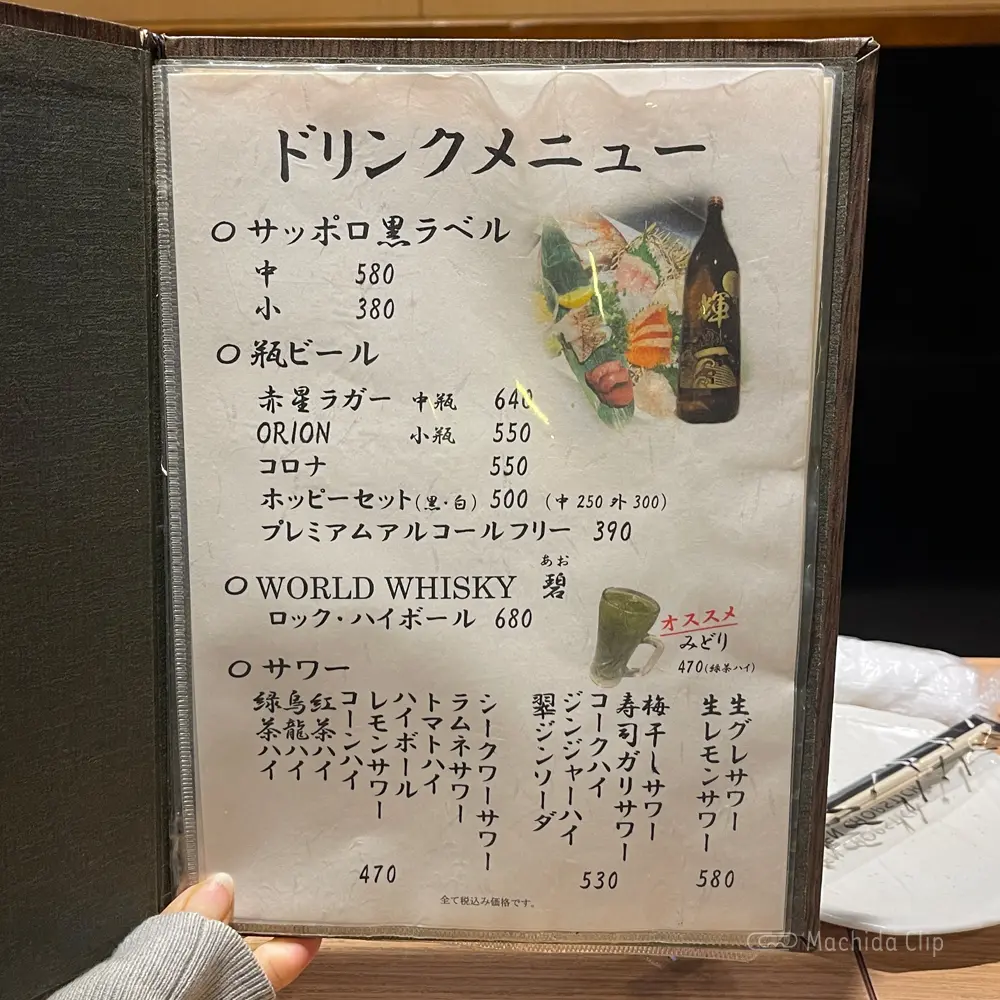 ドリンクメニュー
○ サッポロ黒ラベル
中 580
小 380
○ 瓶ビール
赤星ラガー 中瓶 640
ORION 小瓶 550
コロナ 550
ホッピーセット(黒・白) 500 (中 250 外 300)
プレミアムアルコールフリー 390
あお
○ WORLD WHISKY 碧
ロック・ハイボール 680
オススメ
みどり
470(緑茶ハイ)
○ サワー
生グレサワー
生レモンサワー
580
梅干しサワー
寿司ガリサワー
コークハイ
ジンジャーハイ
翠ジンソーダ
530
シークワーサワー
ラムネサワー
トマトハイ
ハイボール
レモンサワー
コーンハイ
紅茶ハイ
烏龍ハイ
緑茶ハイ
470
全て税込み価格です。
Machida Clip